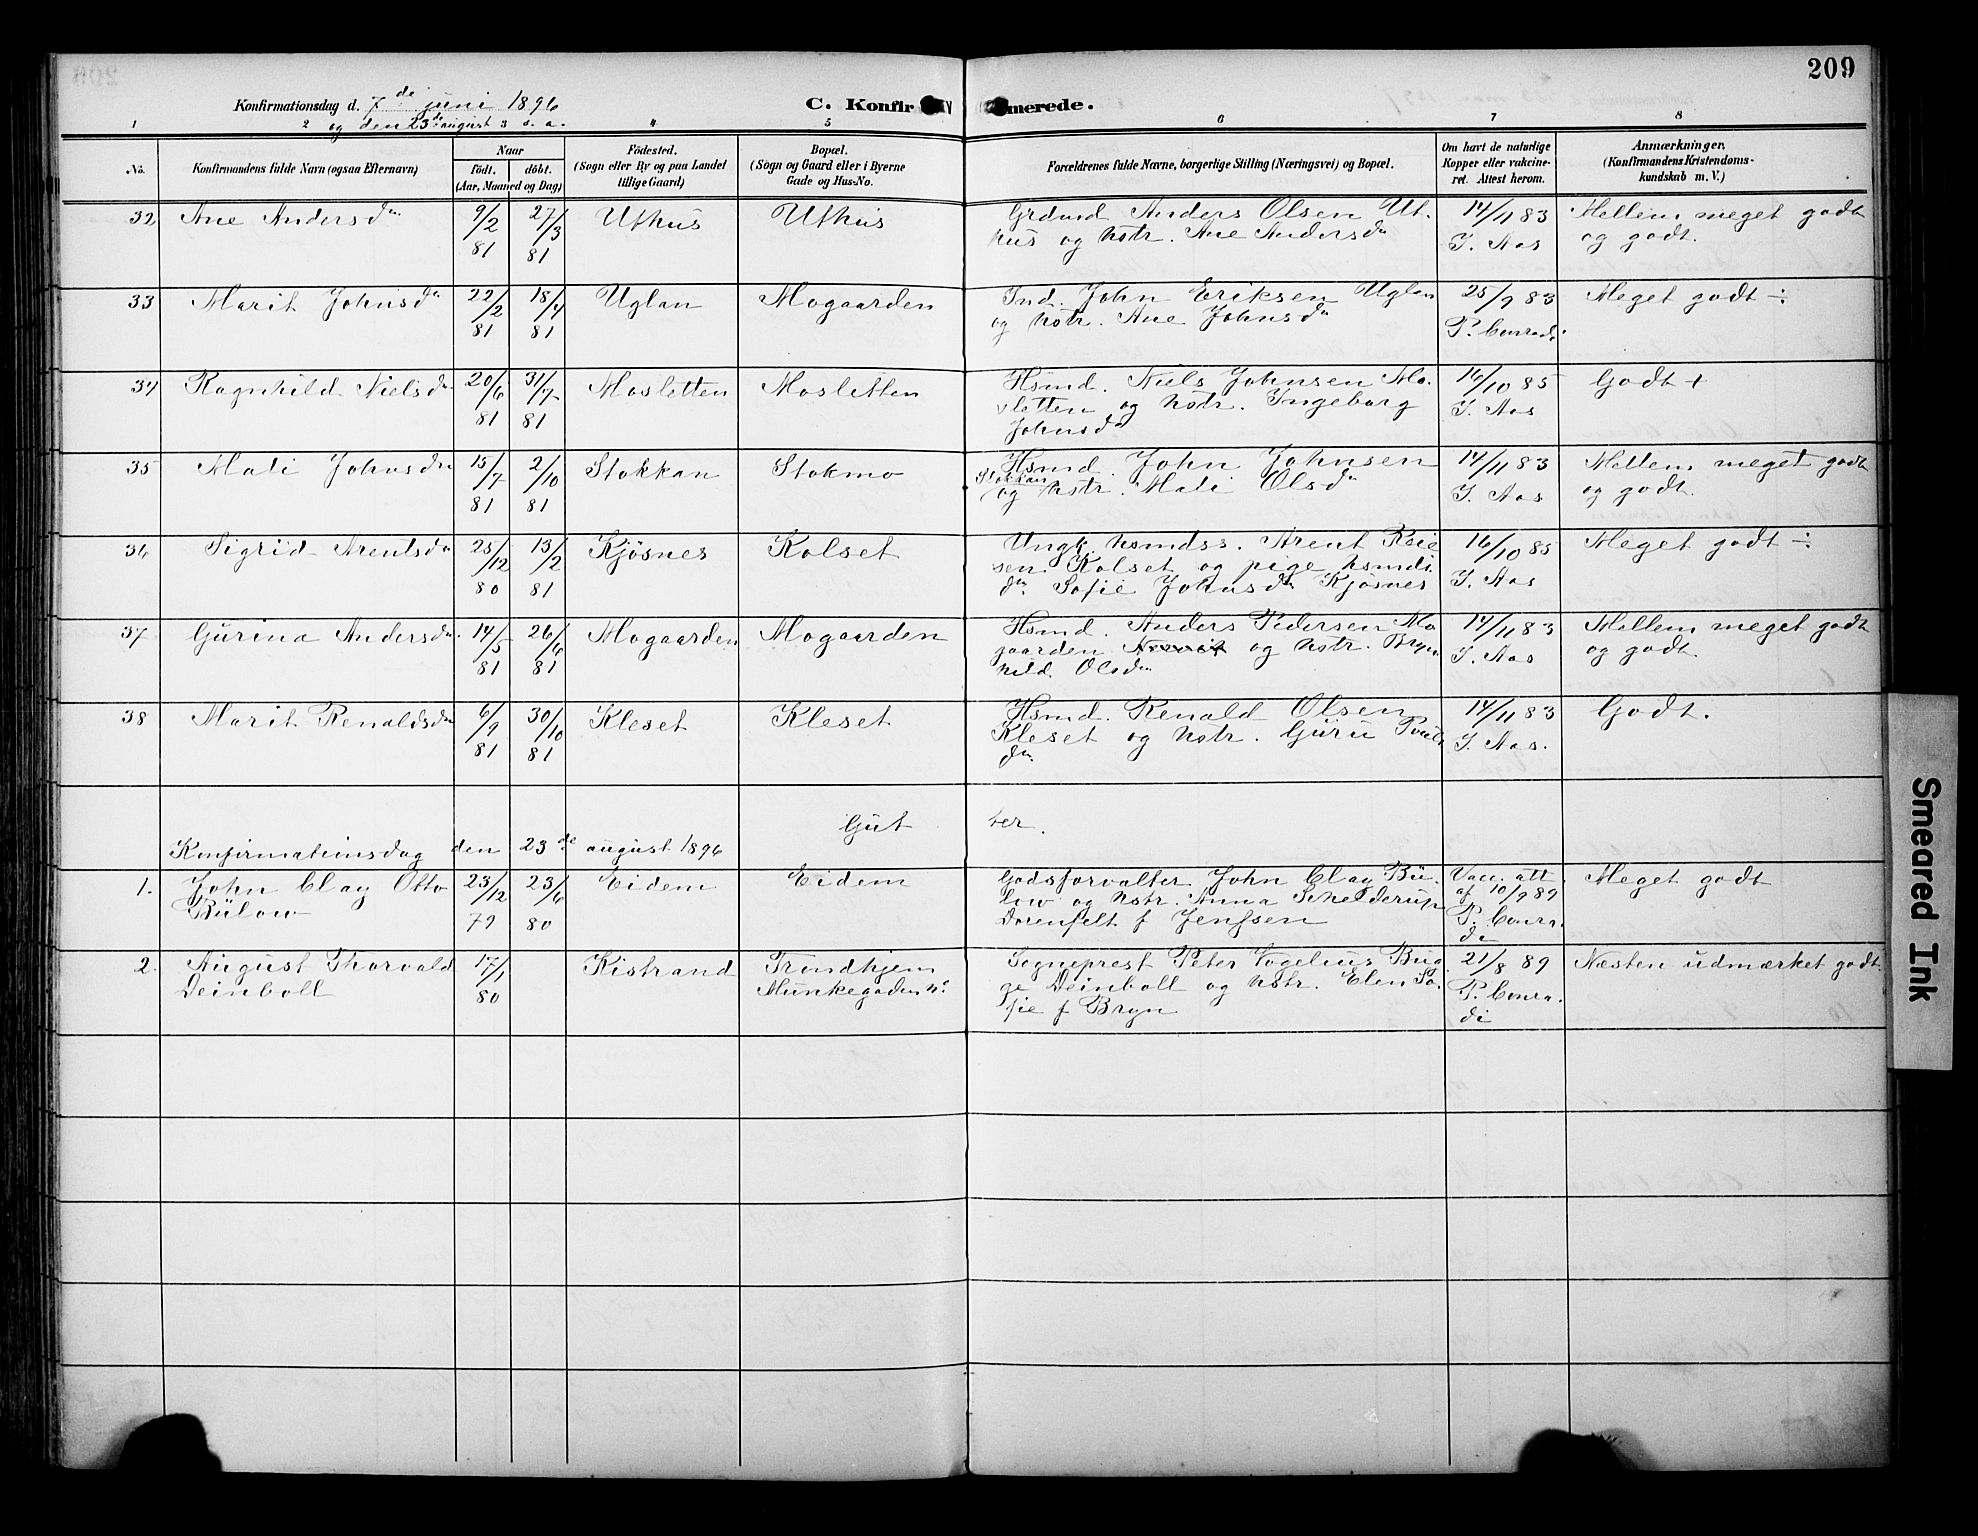 209
Konfirmationsdag d. 7de juni 1896
og den 23de august s. a.
C. Konfirmerede.
1 2 3 4 5 6 7 8
No.
Konfirmandens fulde Navn (ogsaa Efternavn)
Naar
født. døbt.
(Aar, Maaned og Dag)
Fødested.
(Sogn eller By og paa Landet
tillige Gaard)
Bopæl.
(Sogn og Gaard eller i Byerne
Gade og Hus-No.
Forældrenes fulde Navne, borgerlige Stilling (Næringsvei) og Bopæl.
Om havt de naturlige
Kopper eller vakcine-
ret. Attest herom.
Anmærkninger.
(Konfirmandens Kristendoms-
kundskab m. V.)
32 Ane Andersdn 9/2 81 27/3 81 Uthus Uthus
Grdmd Anders Olsen Ut-
hus og hstr. Ane Andersdn
14/11 83
I. Aas
Mellem meget godt
og godt.
33 Marit Johnsdn 22/2 81 18/4 81 Uglan Mogaarden
Ind. John Eriksen Uglan
og hstr. Ane Johnsdn
25/9 83
P. Conradi
Meget godt ÷
34 Ragnhild Nielsdn 20/6 81 31/7 81 Mosletten Mosletten
Hsmd. Niels Johnsen Mo-
sletten og hstr. Ingeborg
Johnsdn
16/10 85
I. Aas
Godt +
35 Mali Johnsdn 15/7 81 2/10 81 Stokkan Stokmo
Hsmd. John Johnsen
Stokkan
og hstr. Mali Olsdn
14/11 83
I. Aas
Mellem meget godt
og godt.
36 Sigrid Arentsdn 25/12 80 13/2 81 Kjøsnes Kolset
Ungk. hsmdss. Arent
sen Kolset og pige hsmds
dn Sofie Johnsdn Kjøsnes
16/10 85
I. Aas
Meget godt ÷
37 Gurina Andersdn 14/5 81 26/6 81 Mogaarden Mogaarden
Hsmd. Anders Pedersen Mo
gaarden og hstr. Bryn
hild Olsdn
14/11 83
I. Aas
Mellem meget godt
og godt
38 Marit Renaldsdn 6/9 81 30/10 81 Kleset Kleset
Hsmd. Renald Olsen
Kleset og hstr. Guru Pouls
dn
14/11 83
I. Aas.
Godt.
Gutter.
Konfirmationsdag den 23de august 1896
1. John Clay Otto
Bülow
23/12 79 23/6 80 Eidem Eidem
Godsforvalter John Clay Bü-
low og hstr. Anna Schelderup
Dorenfelt f Jenssen
Vacc. att
af 10/9 89
P. Conra-
di
Meget godt
2. August Thorvald
Deinboll
17/1 80 Kistrand Trondhjem
Munkegaden
Sogneprest Peter Vogelius Bug
ge Deinboll og hstr. Elen So-
fie f Bryn
21/8 89
P. Conra-
di
Næsten udmærket godt
Smeared Ink